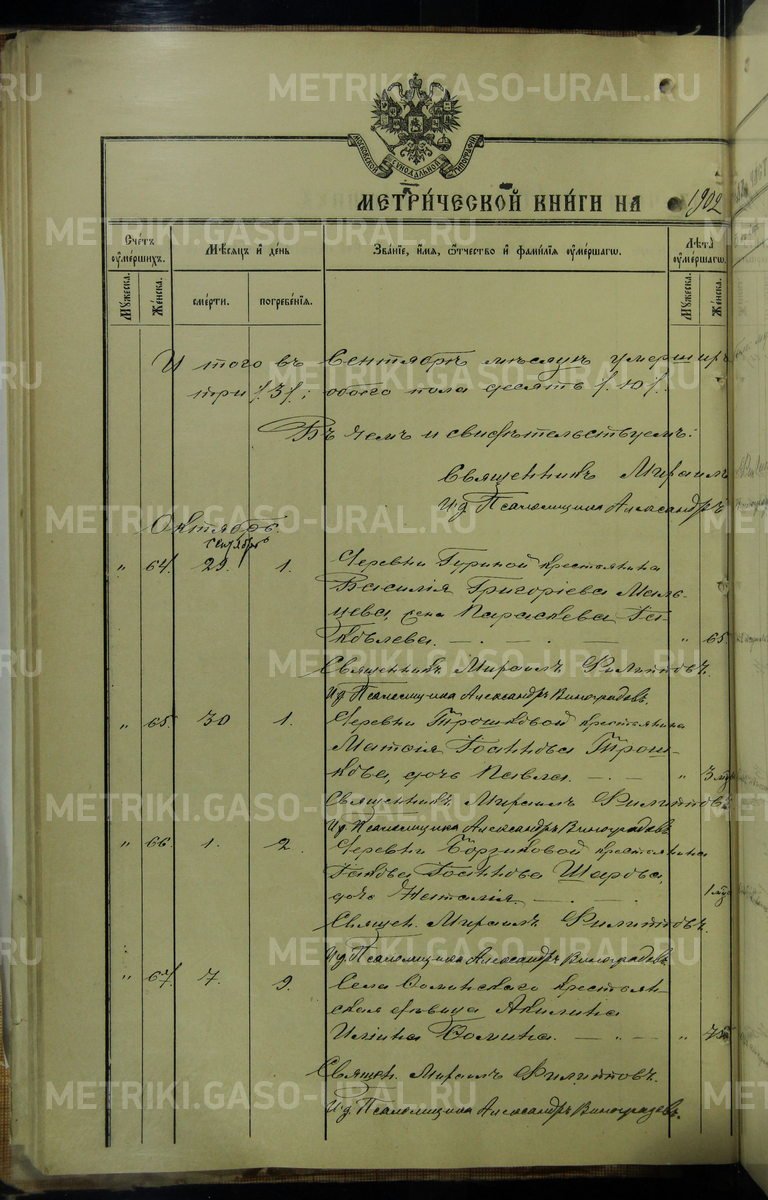 МОСКОВСКОЙ СѴНОДАЛЬНОЙ ТИПОГРАФІИ
МЕТРИ́ЧЕСКОЙ КНИ́ГИ НА 1902
Сче́тъ ᲂу҆ме́ршихъ.
Мꙋ́жеска.
Же́нска.
Мѣ́сѧцъ и҆ де́нь
сме́рти.
погребе́нїѧ.
Зва́нїе, и҆́мѧ, ѻ҆́тчество и҆ фами́лїѧ ᲂу҆ме́ршагѡ.
Лѣ́та ᲂу҆ме́ршагѡ.
Мꙋ́жеска.
Же́нска.
Итого въ Сентябрѣ мѣсяцѣ умерш
три /3/; обоего пола десять /10/.
Въ чемъ и свидѣтельствуемъ:
Священникъ Михаилъ
И.д. Псаломщика Александръ
Октябрь.
Сентября
" 64. 29. 1. Деревни Гуриной крестьянина
Василія Григоріева Маль-
цева, жена Параскева Іа-
ковлева. " 65.
Священникъ Михаилъ Филипповъ.
И.д. Псаломщика Александръ Виноградовъ.
" 65. 30 1. Деревни Трошковой крестьянина
Матѳія Іоаннова Трош-
кова, дочь Павла. " 3 мѣс
Священникъ Михаилъ Филипповъ
И.д. Псаломщика Александръ Виноградовъ
" 66. 1. 2. Деревни крестьянина
Іакова Іоаннова Шарова,
дочь Наталія. 1 мѣс
Священ. Михаилъ Филипповъ.
И.д. Псаломщика Александръ Виноградовъ
" 67. 7. 9. Села крестьян-
ская дѣвица Акилина
Ильина Ѳомина. " 75
Священ. Михаилъ Филипповъ.
И.д. Псаломщика Александръ Виноградовъ.
METRIKI.GASO-URAL.RU